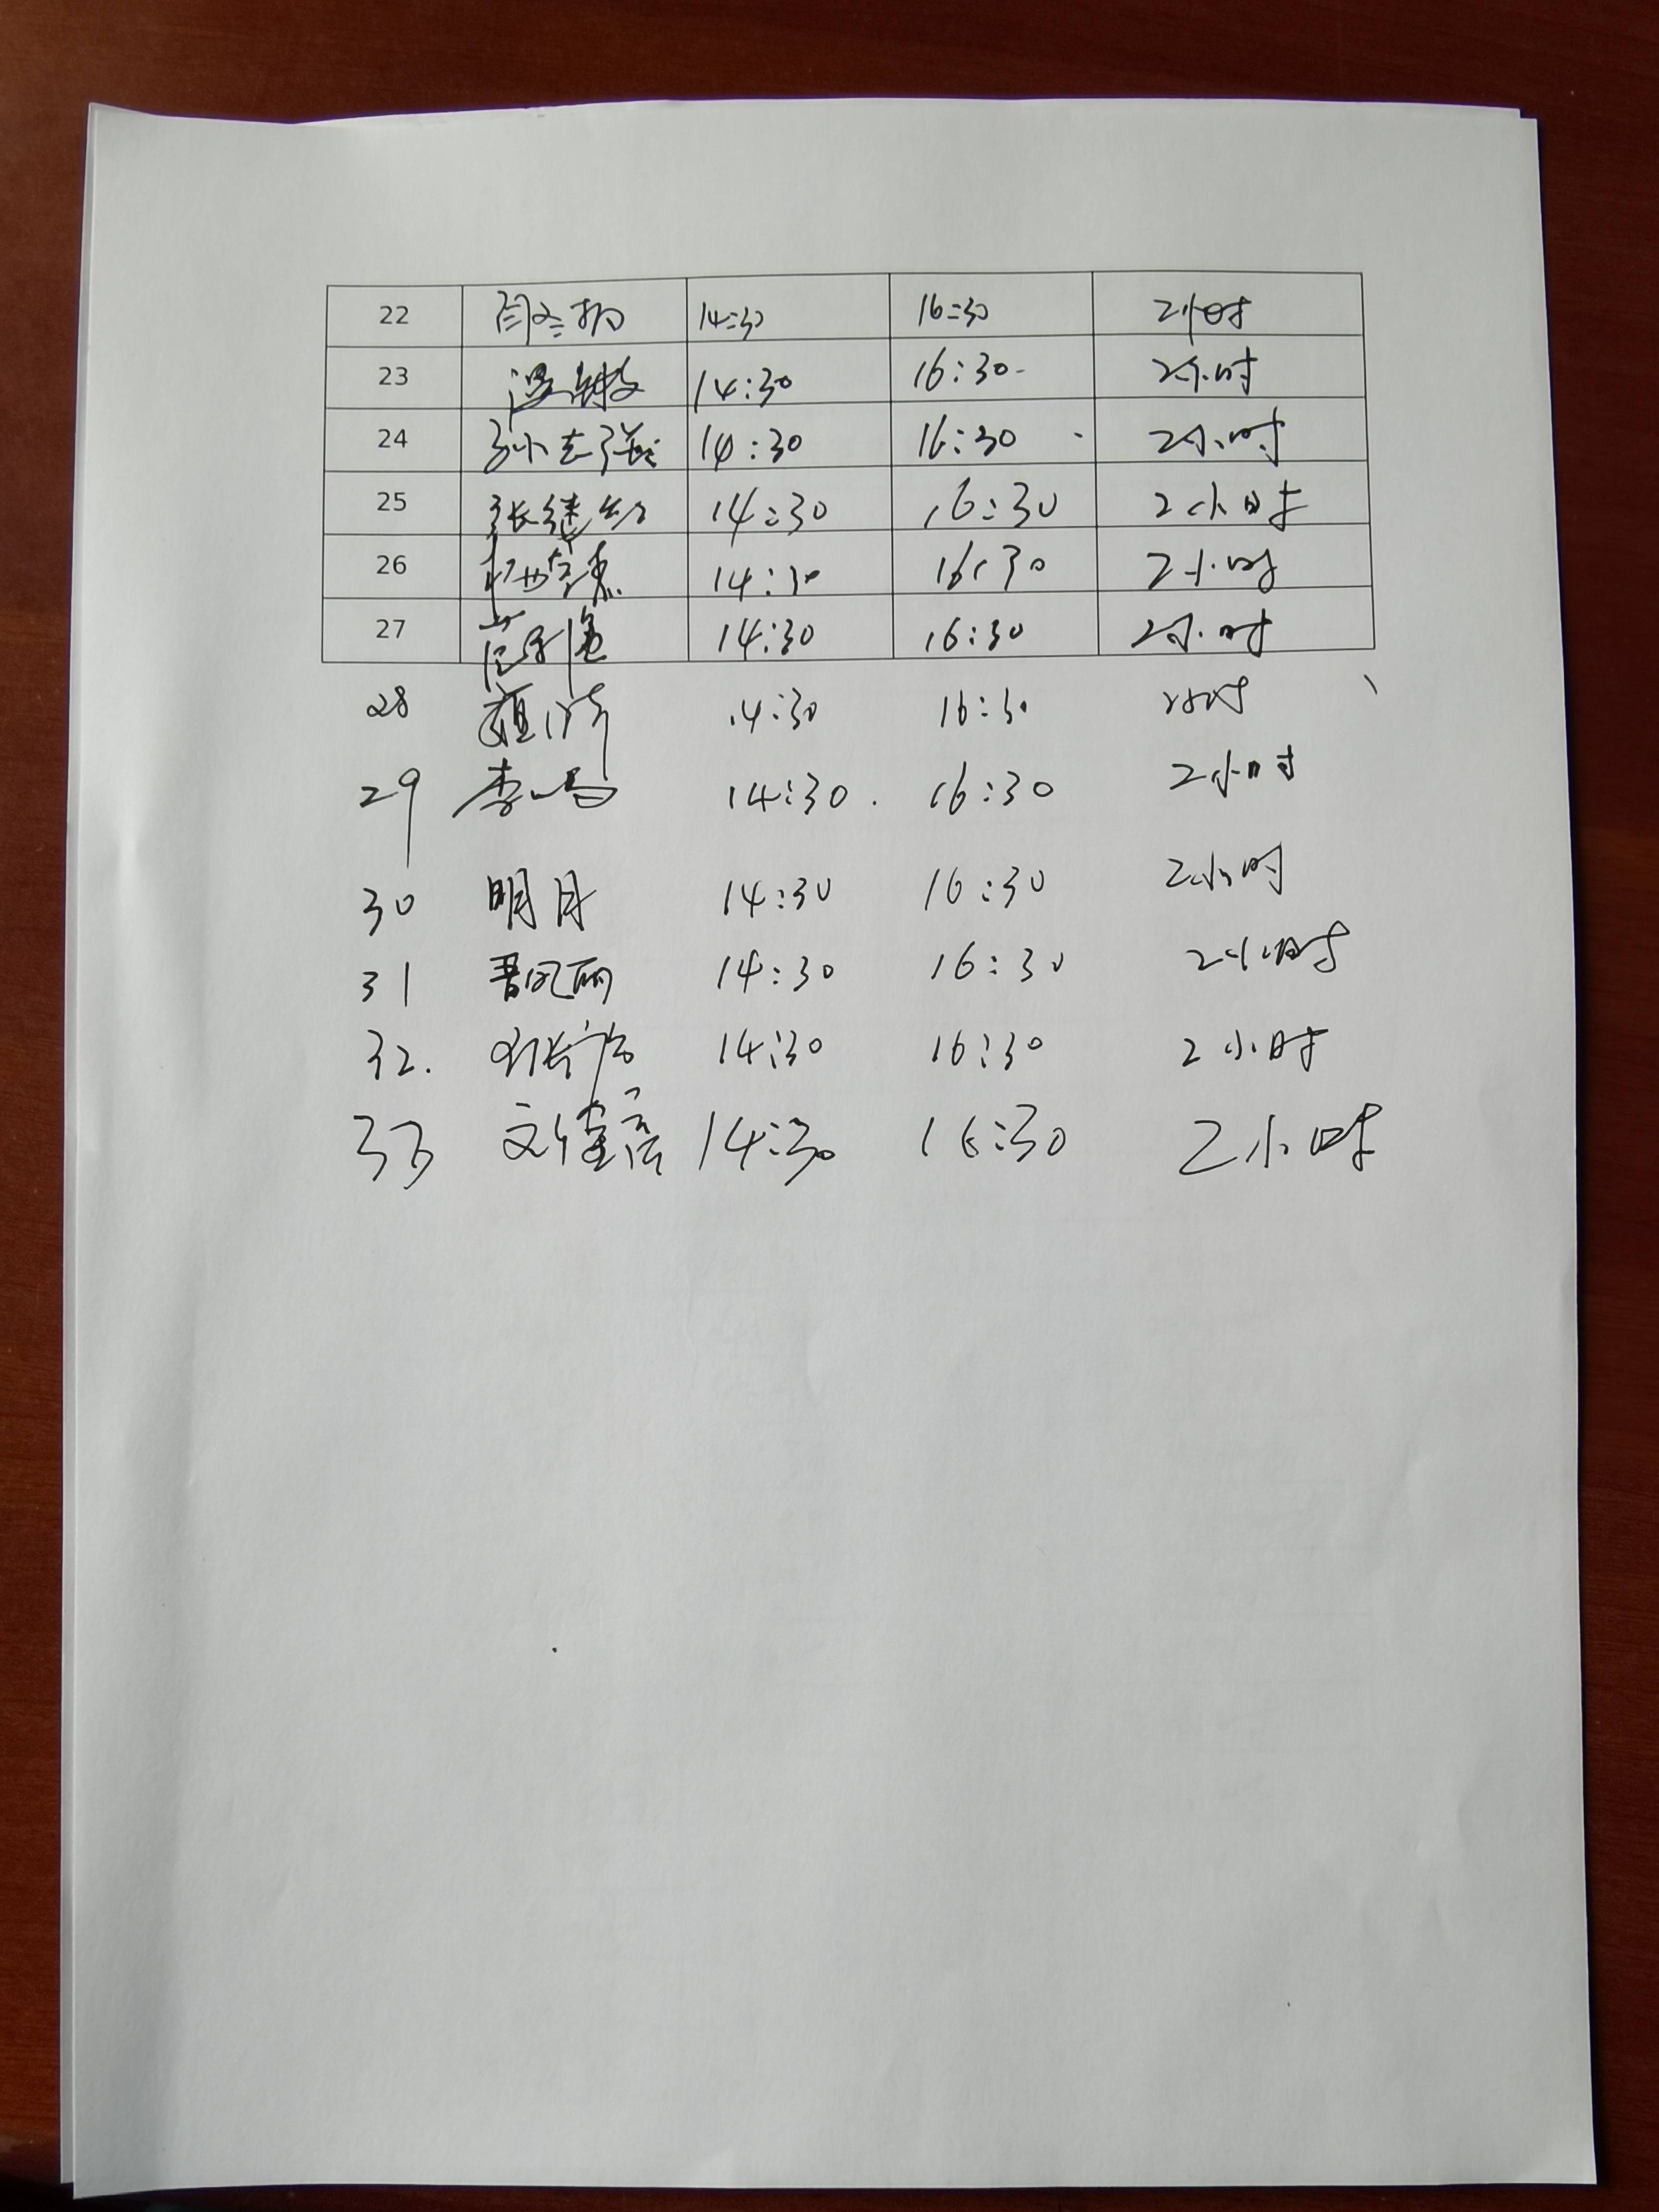 22 14:30 16:30 2小时
23 温敏 14:30 16:30 2小时
24 孙志强 14:30 16:30 2小时
25 张继 14:30 16:30 2小时
26 14:30 16:30 2小时
27 范 14:30 16:30 2小时
28 14:30 16:30 2小时
29 李 14:30 16:30 2小时
30 明月 14:30 16:30 2小时
31 晋凤丽 14:30 16:30 2小时
32. 14:30 16:30 2小时
33 刘 14:30 16:30 2小时